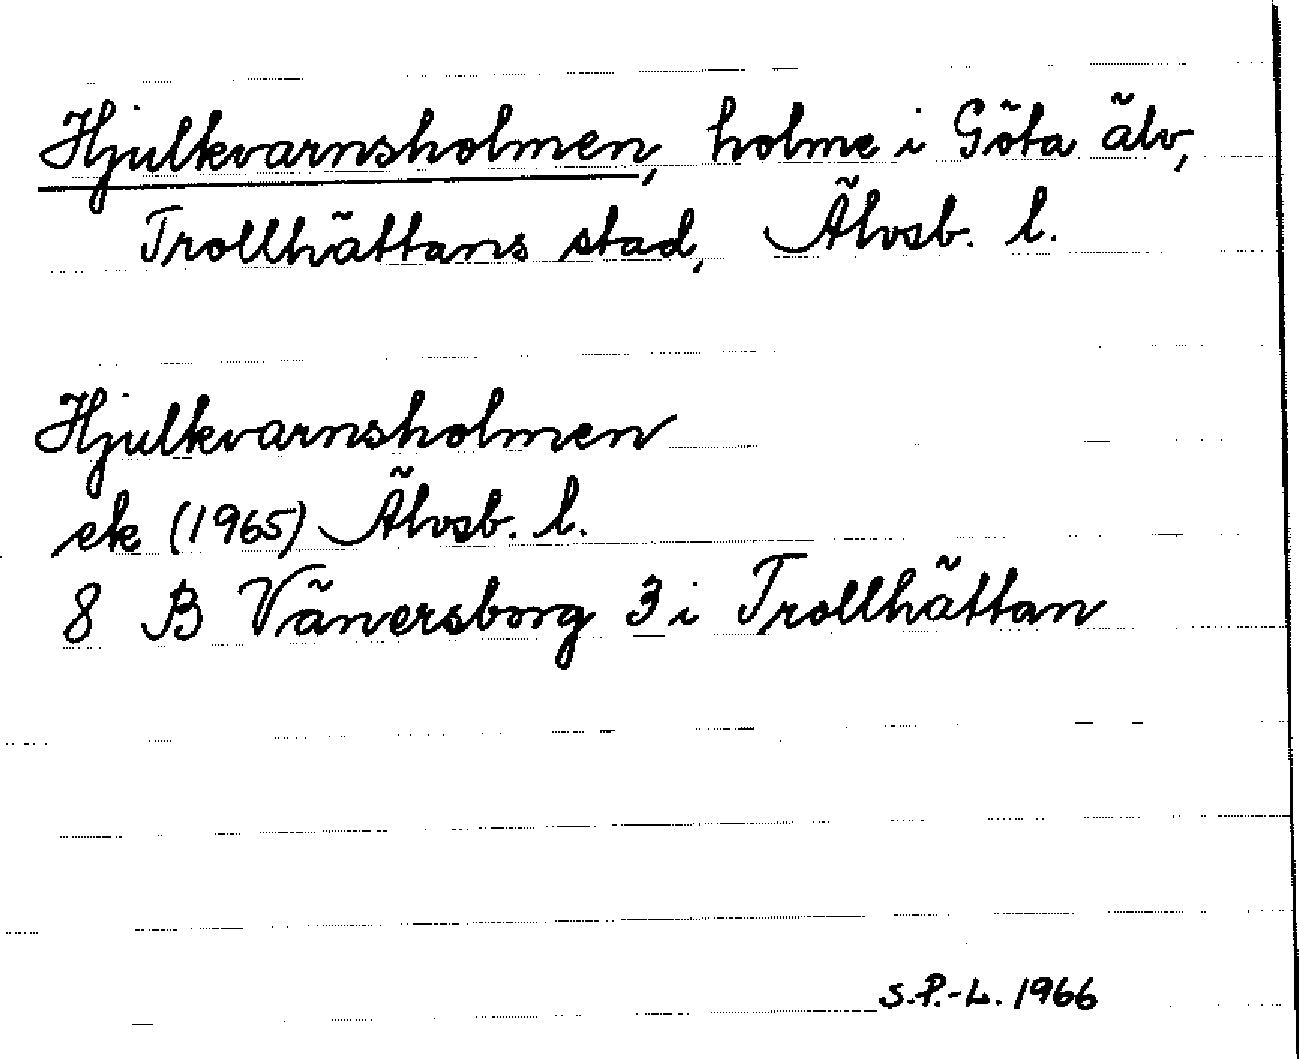 Hjulkvarnsholmen, holme i Göta älv,
Trollhättans stad, Älvsb. l.
Hjulkvarnsholmen
ek (1965) Älvsb. l.
8 B Vänersborg 3 i Trollhättan
S.P.-L. 1966